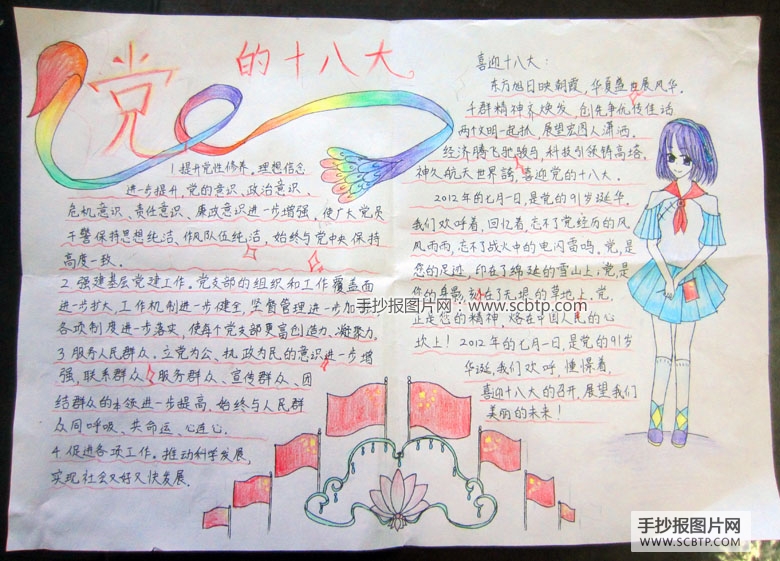 党的十八大
1 提升党性修养，理想信念
进一步提升，党的意识、政治意识、
危机意识、责任意识、廉政意识进一步增强，使广大党员
干警保持思想纯洁、作风队伍纯洁，始终与党中央保持
高度一致。
2 强建基层党建工作。党支部的组织和工作覆盖面
进一步扩大，工作机制进一步健全，监督管理进一步加
各项制度进一步落实，使每个党支部更富创造力、凝聚力，
3 服务人民群众、立党为公、执政为民的意识进一步增
强，联系群众、服务群众、宣传群众、团
结群众的本领进一步提高，始终与人民群
众同呼吸、共命运、心连心。
4 促进各项工作。推动科学发展，
实现社会又好又快发展。
喜迎十八大：
东方旭日映朝霞，华夏盛世展风华。
干群精神齐焕发，创先争优传佳话
两个文明一起抓，展望宏图人潇洒。
经济腾飞驰骏马，科技引领铸高塔。
神久航天世界誇，喜迎党的十八大。
2012年的七月一日，是党的91岁诞华，
我们欢呼着，回忆着，忘不了党经历的风
风雨雨，忘不了战火中的电闪雷鸣。党，是
您的足迹，印在了绵延的雪山上；党，是
你的身影，刻在了无垠的草地上，党，
正是您的精神，烙在中国人民的心
坎上！2012年的七月一日，是党的91岁
华诞，我们欢呼，憧憬着，
喜迎十八大的召开，展望我们
美丽的未来！
手抄报图片网：www.scbtp.com
手抄报图片网
WWW.SCBTP.COM